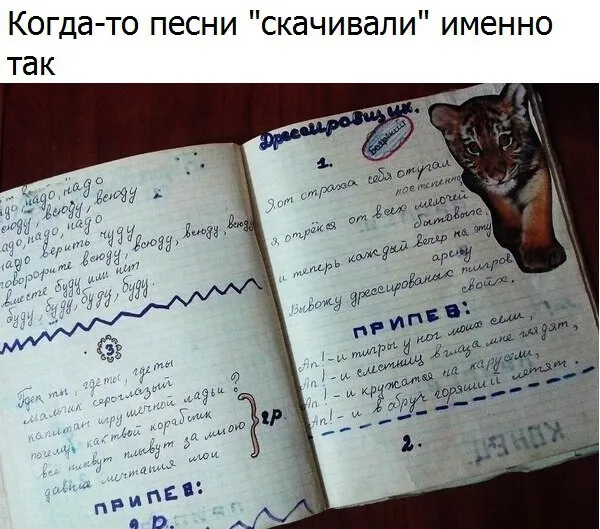 Когда-то песни "скачивали" именно
так
надо, надо
всюду, всюду
надо, надо, надо
надо верить чуду
всюду, всюду, всюду, всюду
вместе буду или нет
буду, буду, буду, буду.
3
Где ты, где ты, где ты
мальчик сероглазый
капитан игрушечной ладьи?
почему, как твой кораблик
все плывут плывут за мною
давние мечтания мои
2р.
ПРИПЕВ:
2 р.
Дрессировщик.
Боярский
1.
Я от страха себя отучал
постепенно
Я, отрёкся от всех мелочей
бытовых.
и теперь каждый вечер на эту
арену
Вывожу дрессированых тигров
своих.
ПРИПЕВ:
Ап! - и тигры у ног моих сели,
Ап! - и с лестниц в глаза мне глядят,
Ап! - и кружатся на карусели,
Ап! - и в обруч горящий летят.
2.
КОНЕЦ